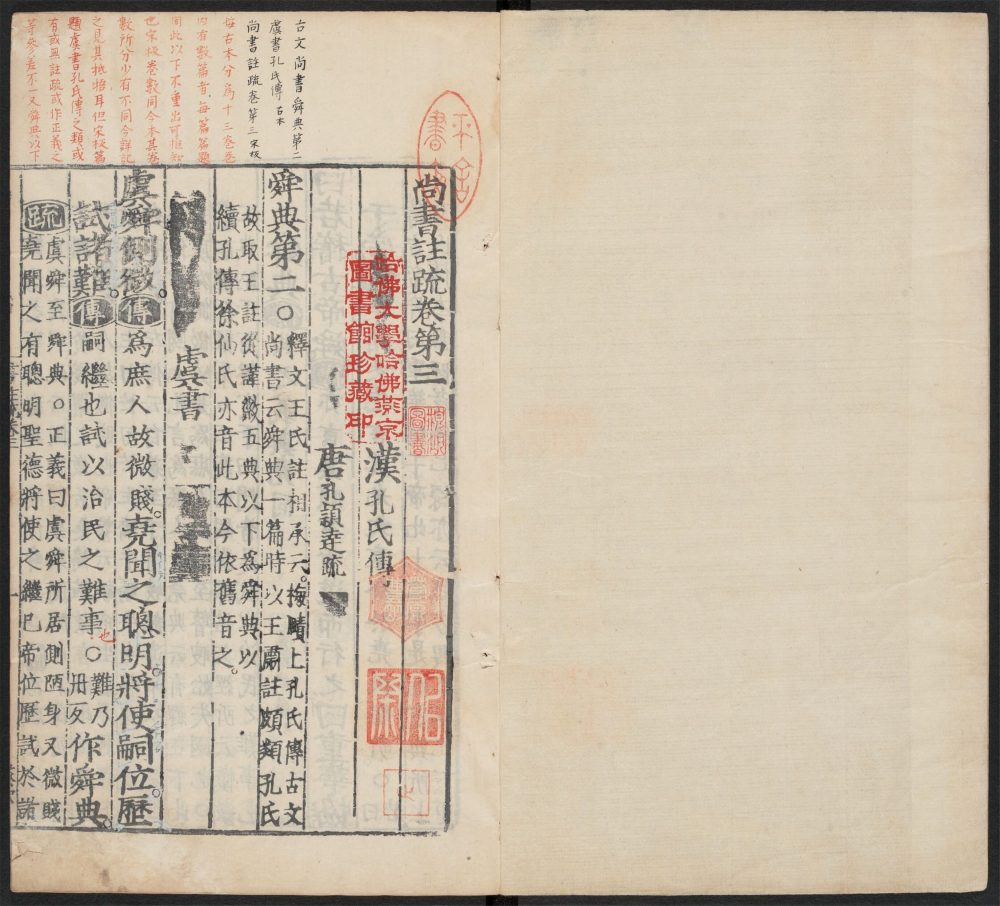 古文尚書舜典第二
虞書孔氏傳 古本
尚書註疏卷第三 宋板
每古本分爲十三卷卷
内有數篇者每篇篇題
同此以下不重出可推知
也宋板卷數同今本其卷
數所分少有不同今詳記
之見其抵捂耳但宋板篇
題虞書孔氏傳之類或
有或無註疏或作正義之
等參差不一又舜典以下
尚書註疏卷第三
漢孔氏傳
唐孔穎達疏
哈佛大學哈佛燕京
圖書館珍藏印
舜典第二○釋文王氏註相承云梅賾上孔氏傳古文
尚書云舜典一篇時以王肅註頗類孔氏
故取王註從謹徽五典以下爲舜典以
續孔傳徐仙民亦音此本今依舊音之。
虞書
虞舜側微。傳爲庶人故微賤。堯聞之聰明。將使嗣位。歷
試諸難。傳嗣繼也試以治民之難事也○難乃丹反作舜典。
疏虞舜至舜典。○正義曰虞舜所居側陋身又微賤
堯聞之有聰明聖德將使之繼已帝位歷試於諸